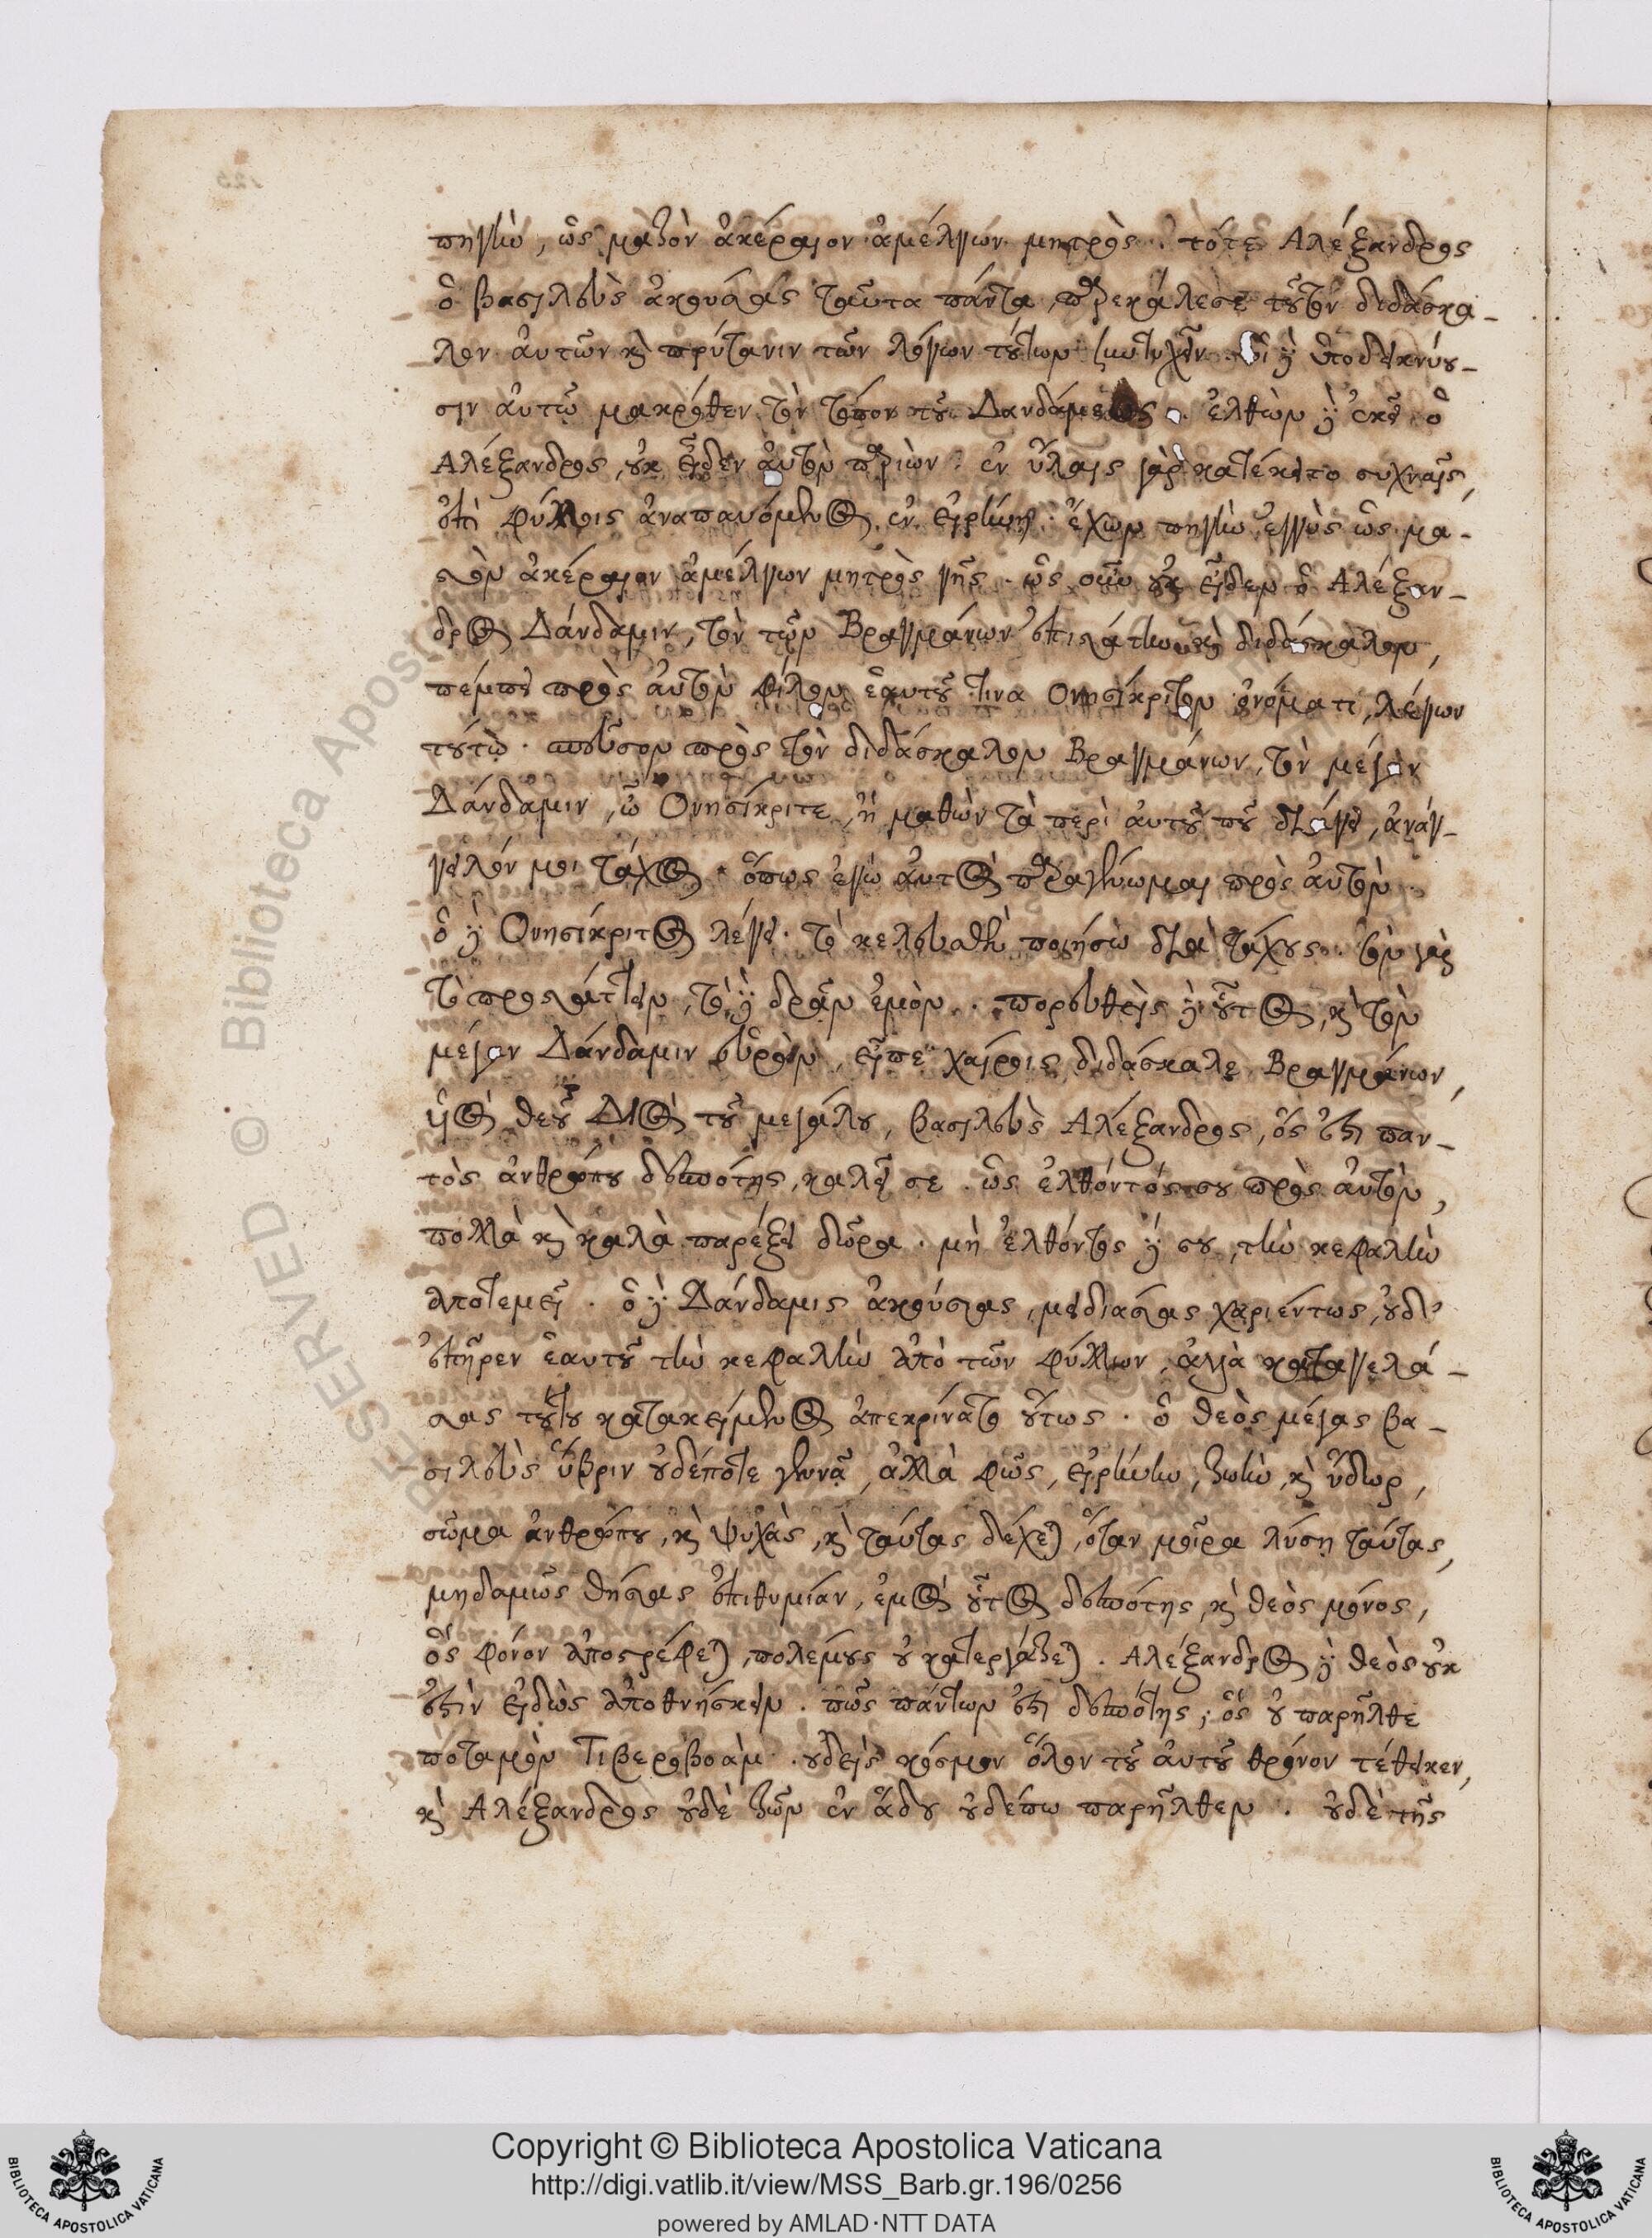 πηγὴν, ὡς μαζὸν ἀκέραιον ἀμέλγων μητρὸς. τότε Αλέξανδρος
ὁ βασιλεὺς ἀκούσας ταῦτα πάντα, παρεκάλεσε τοῦτον διδάσκα-
λον αὐτῶν καὶ πρύτανιν τῶν λόγων τούτων συντυχεῖν. οἱ δὲ ὑποδεικνύου-
σιν αὐτῷ μακρόθεν τὸν τόπον τοῦ Δανδάμεως. ἐλθὼν δὲ ἐκεῖ ὁ
Αλέξανδρος, οὐκ εἶδεν αὐτὸν παριὼν. ἐν ὕλαις γὰρ κατέκειτο συχναῖς,
ἐπὶ φύλλοις ἀναπαυόμενος ἐν εἰρήνῃ. ἔχων πηγὴν ἐγγὺς ὡς μα-
στὸν ἀκέραιον ἀμέλγων μητρὸς γῆς. ὡς οὖν οὐκ εἶδεν ὁ Αλέξαν-
δρος Δάνδαμιν, τὸν τῶν Βραγμάνων ἐπιστάτην καὶ διδάσκαλον,
πέμπει πρὸς αὐτὸν φίλον ἑαυτοῦ τινα Ονησίκριτον ὀνόματι, λέγων
τούτῳ. σπεῦσον πρὸς τὸν διδάσκαλον Βραγμάνων, τὸν μέγαν
Δάνδαμιν, ὦ Ονησίκριτε, ἢ μαθὼν τὰ περὶ αὐτοῦ ποῦ διάγει, ἀνάγ-
γειλόν μοι τάχος. ὅπως ἐγὼ αὐτὸς παραγένωμαι πρὸς αὐτὸν.
ὁ δὲ Ονησίκριτος λέγει. τὸ κελευσθὲν ποιήσω διὰ τάχους. σὸν γὰρ
τὸ προστάττειν, τὸ δὲ δρᾶν ἐμὸν. πορευθεὶς δὲ οὗτος, καὶ τὸν
μέγαν Δάνδαμιν εὑρὼν, εἶπε χαίροις διδάσκαλε Βραγμάνων,
υἱὸς θεοῦ Διὸς τοῦ μεγάλου, βασιλεὺς Αλέξανδρος, ὅς ἐστι παν-
τὸς ἀνθρώπου δεσπότης, καλεῖ σε. ὡς ἐλθόντός σου πρὸς αὐτὸν,
πολλὰ καὶ καλὰ παρέξει δῶρα. μὴ ἐλθόντος δέ σου, τὴν κεφαλὴν
ἀποτεμεῖ. ὁ δὲ Δάνδαμις ἀκούσας, μειδιάσας χαριέντως, οὐδ'
ἐπῆρεν ἑαυτοῦ τὴν κεφαλὴν ἀπὸ τῶν φύλλων, ἀλλὰ καταγελά-
σας τούτου κατακείμενος ἀπεκρίνατο οὕτως. ὁ θεὸς μέγας βα-
σιλεὺς ὕβριν οὐδέποτε γεννᾷ, ἀλλὰ φῶς, εἰρήνην, ζωὴν, καὶ ὕδωρ,
σῶμα ἀνθρώπου, καὶ ψυχὰς, καὶ ταύτας δέχεται, ὅταν μοῖρα λύσῃ ταύτας,
μηδαμῶς θήσας ἐπιθυμίαν, ἐμὸς οὗτος δεσπότης, καὶ θεὸς μόνος,
ὃς φόνον ἀποστρέφεται, πολέμους οὐ κατεργάζεται. Αλέξανδρος δὲ θεὸς οὐκ
ἔστιν εἰδὼς ἀποθνήσκειν. πῶς πάντων ἐστὶ δεσπότης, ὃς οὐ παρῆλθε
ποταμὸν Τιβεροβοὰμ. οὐδεὶς κόσμον ὅλον τοῦ αὐτοῦ θρόνον τέθεικεν,
καὶ Αλέξανδρος οὐδὲ ζῶν ἐν ᾅδου οὐδέπω παρῆλθεν. οὐδὲ τῆς
RESERVED © Biblioteca Apostolica
Copyright © Biblioteca Apostolica Vaticana
http://digi.vatlib.it/view/MSS_Barb.gr.196/0256
powered by AMLAD·NTT DATA
BIBLIOTECA APOSTOLICA VATICANA
BIBLIOTECA APOSTOLICA VATICANA